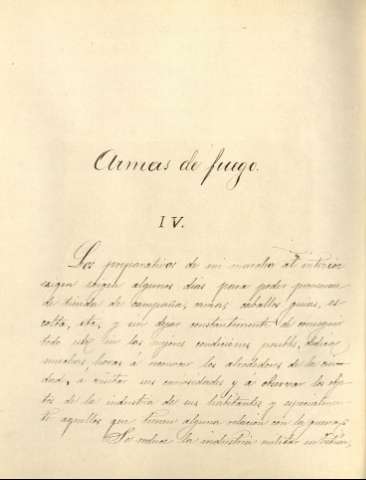 Armas de fuego.
IV.
Los preparativos de mi marcha al interior
exigen algunos dias para poder proveerme
de tienda de campaña, camas, caballos, guias, es
colta, etc, y sin dejar constantemente de conseguir
todo en las mejores condiciones posible, 
muchas horas á recorrer los alrededores de la ciu
dad, á visitar sus curiosidades y á observar los obje
tos de la industria de sus habitantes y especialmen
te aquellos que tienen alguna relacion con la guerra.
Se reduce la industria militar en